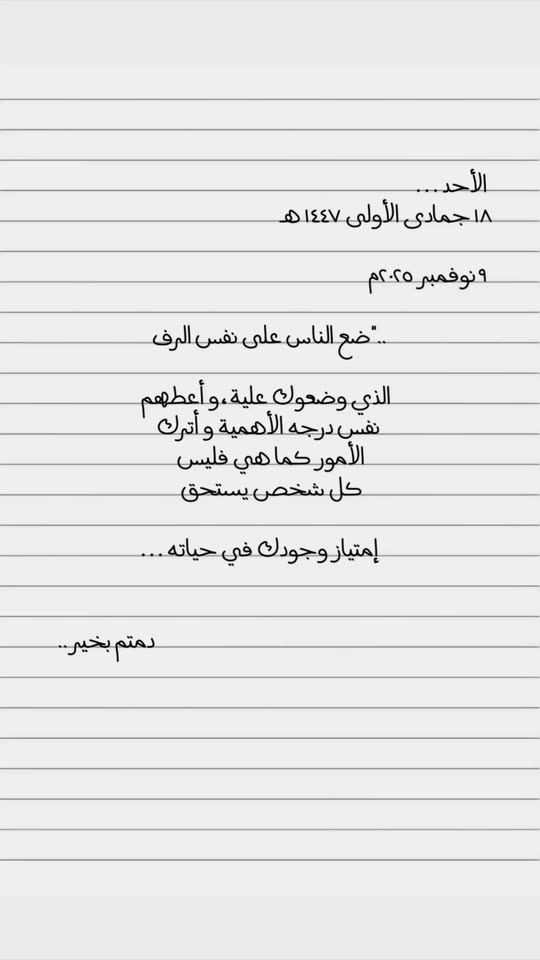 الأحد...
١٨ جمادى الأولى ١٤٤٧ هـ
٩ نوفمبر ٢٠٢٥م
.."ضع الناس على نفس الرف
الذي وضعوك علية ، و أعطهم
نفس درجه الأهمية و أترك
الأمور كما هي فليس
كل شخص يستحق
إمتياز وجودك في حياته ...
دمتم بخير..